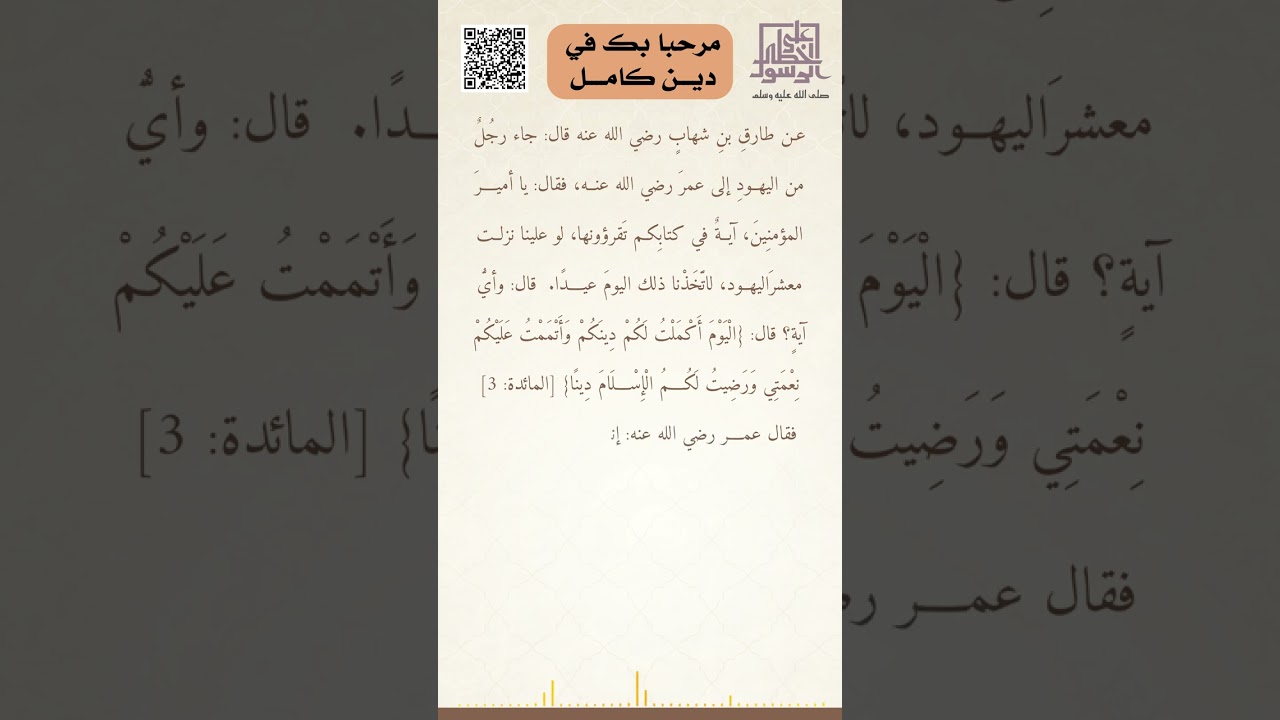 مرحبا بك في
دين كامل
على خطى الرسول
صلى الله عليه وسلم
عن طارقِ بنِ شهابٍ رضي الله عنه قال: جاء رجُلٌ
من اليهودِ إلى عمرَ رضي الله عنه، فقال: يا أميرَ
المؤمنِينَ، آيةٌ في كتابِكم تَقرؤونها، لو علينا نزلت
معشرَاليهود، لاتّخَذْنا ذلك اليومَ عيدًا. قال: وأيُّ
آيةٍ؟ قال: {الْيَوْمَ أَكْمَلْتُ لَكُمْ دِينَكُمْ وَأَتْمَمْتُ عَلَيْكُمْ
نِعْمَتِي وَرَضِيتُ لَكُمُ الْإِسْلَامَ دِينًا} [المائدة: 3]
فقال عمر رضي الله عنه: إن